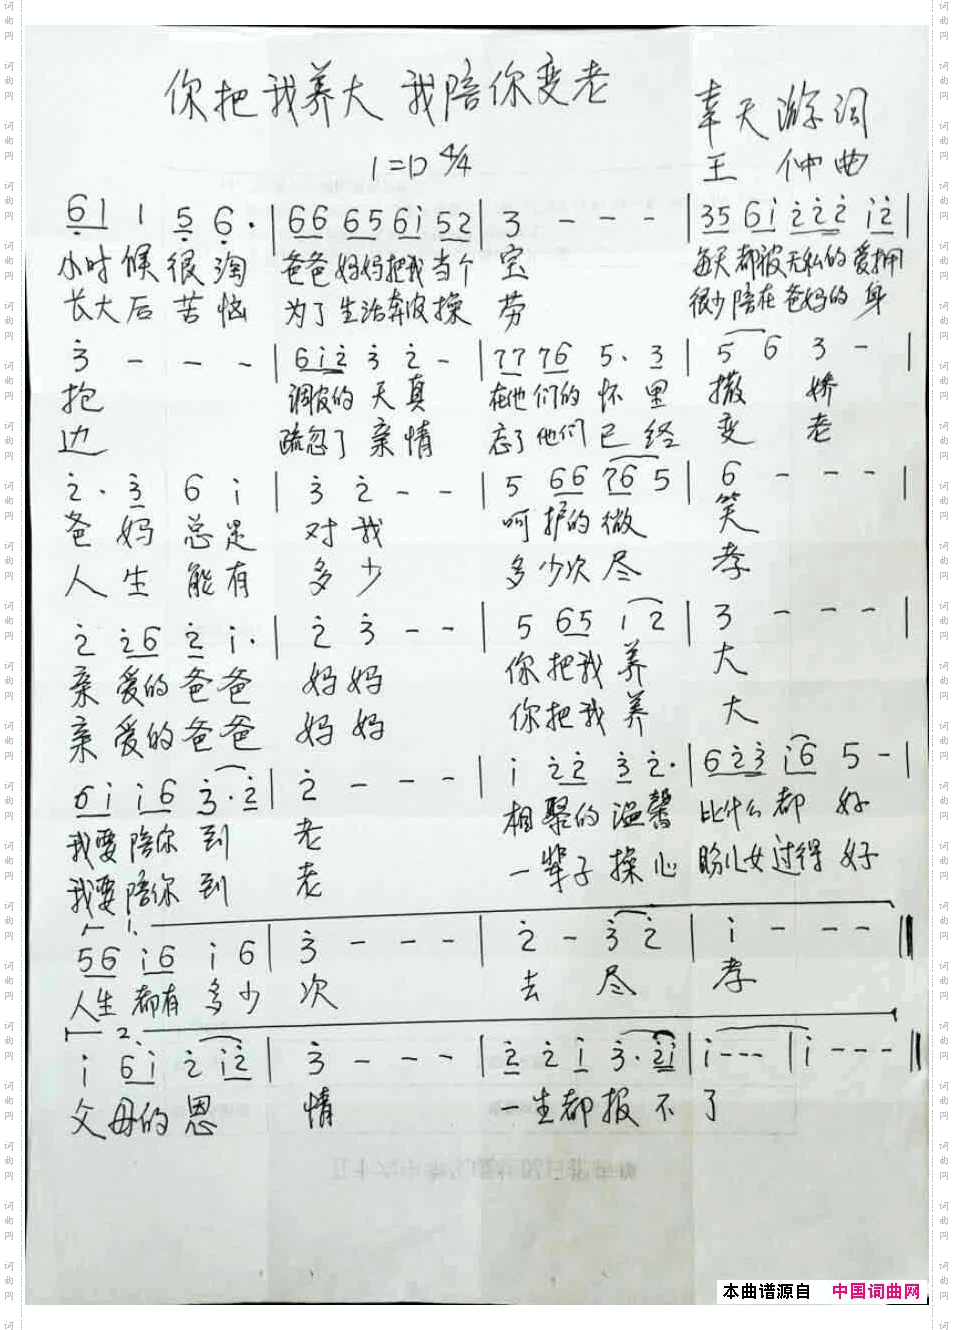 你把我养大 我陪你变老
幸天游词
1=D 4/4
王 仲曲
61 1 5 6· | 66 65 6i 52 | 3 - - - | 35 6i 222 i2 |
小时候很淘 爸爸妈妈把我当个 宝 每天都被无私的爱拥
长大后苦恼 为了生活奔波操 劳 很少陪在爸妈的身
3 - - - | 6i2 3 2 - | 77 76 5· 3 | 5 6 3 - |
抱 调皮的天真 在他们的怀里 撒娇
边 疏忽了亲情 忘了他们已经 变老
2· 3 6 i | 3 2 - - | 5 66 76 5 | 6 - - - |
爸妈总是 对我 呵护的微 笑
人生能有 多少 多少次尽 孝
2 26 2 i· | 2 3 - - | 5 65 1 2 | 3 - - - |
亲爱的爸爸 妈妈 你把我养 大
亲爱的爸爸 妈妈 你把我养 大
6i i6 3·2 | 2 - - - | i 22 3 2· | 623 i6 5 - |
我要陪你到 老 相聚的温馨 比什么都好
我要陪你到 老 一辈子操心 盼儿女过得好
1.
56 i6 i 6 | 3 - - - | 2 - 3 2 | i - - - ‖
人生都有多少 次 去尽 孝
2.
i 6i 2 i2 | 3 - - - | 2 2 i 3· 2i | i - - - | i - - - ‖
父母的恩 情 一生都报不了
本曲谱源自 中国词曲网